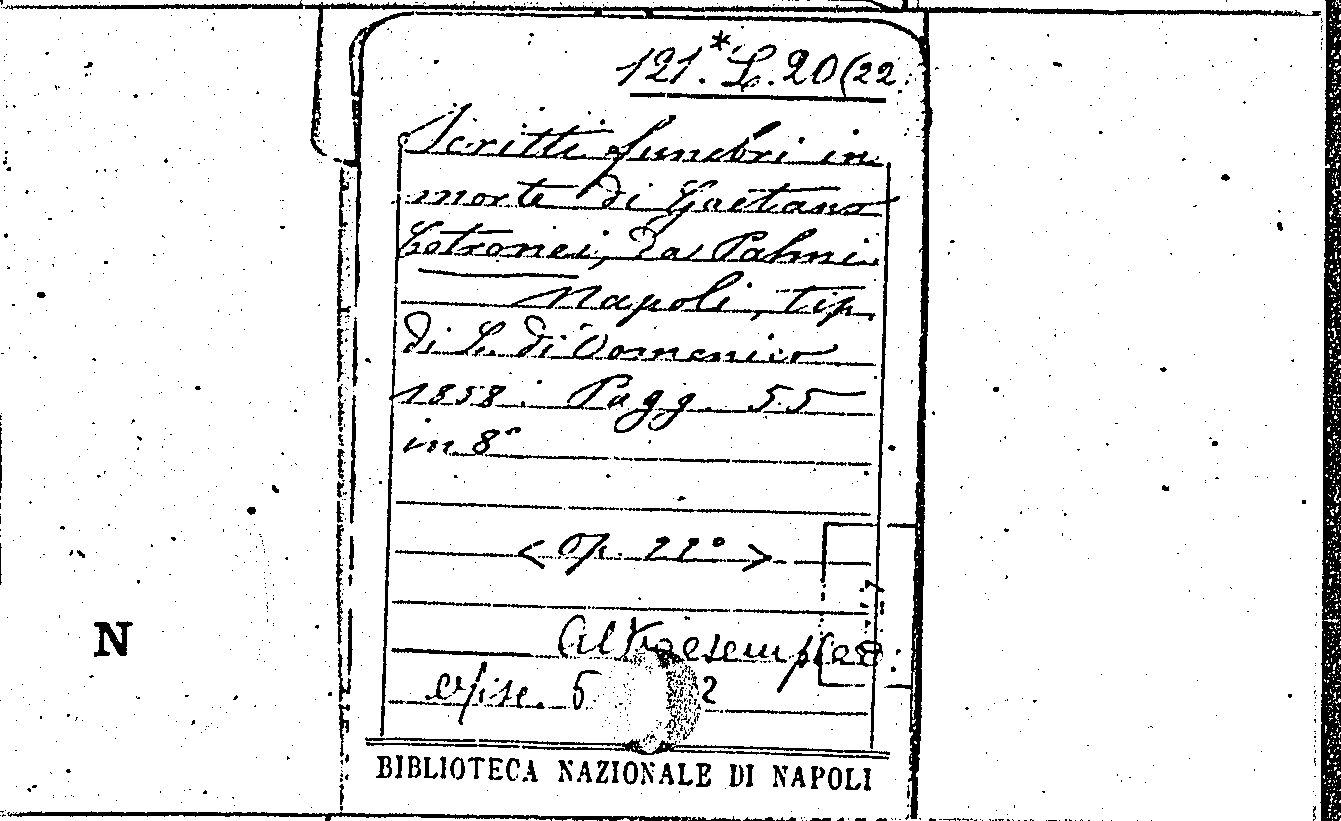 121.* L. 20 (22.
Scritti funebri in
morte di Gaetano
Cotronei, da Palmi.
Napoli, tip.
di L. di Domenico
1858. Pagg. 55
in 8°
< Op. 22° >
Altro esemplare:
5 2
N
BIBLIOTECA NAZIONALE DI NAPOLI